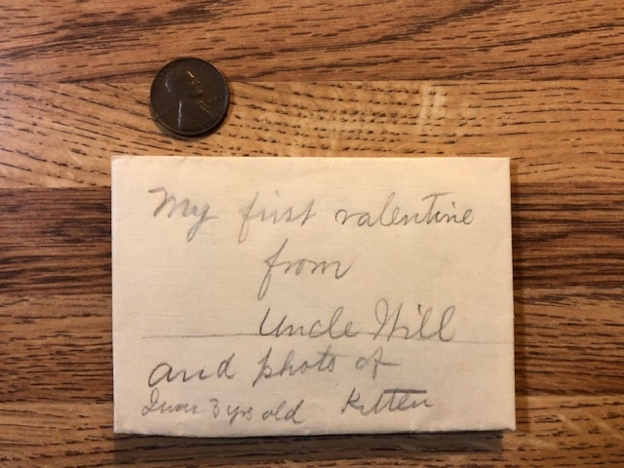 My first valentine
from
Uncle Will
and photo of
I was 3 yrs old Kitten